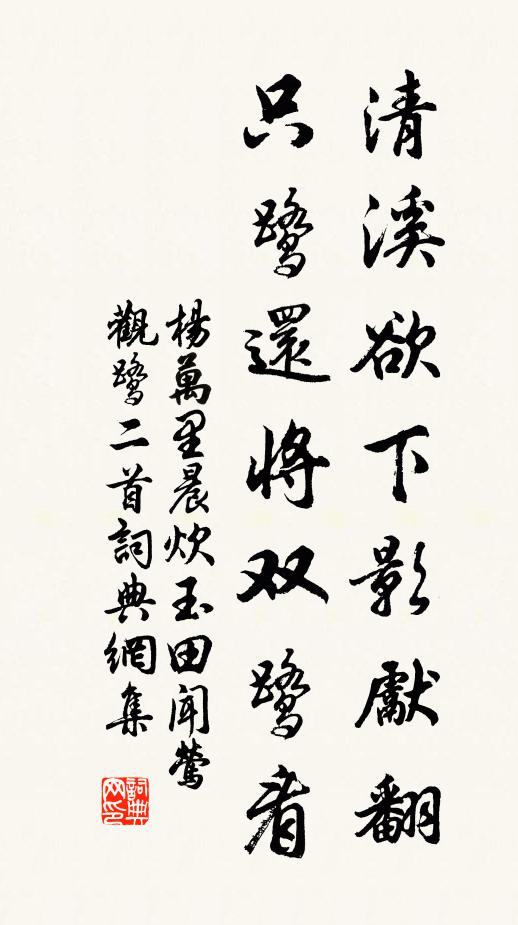 清溪欲下影獻翻
只鹭還將双鹭看
楊萬里晨炊玉田闻莺
觀鹭二首詞典網集
詞典網印